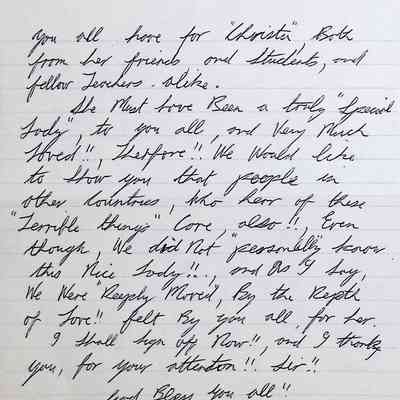 you all have for "Christa", Both
from her friends, and Students, and
fellow Teachers. alike.
She Must have Been a truly "Special
Lady", to you all, and Very Much
Loved!!, Therfore!! We Would like
to Show you that people in
other Countries, Who hear of these
"Terrible things" Care, also!!, Even
though, We did Not "personally" know
this Nice Lady!!., and As I Say,
We Were "Deeply Moved, By the Depth
of Love!! felt By you all, for her.
I Shall Sign off Now!!, and I thank
you, for your attention!! Sir"!
God Bless you all"!